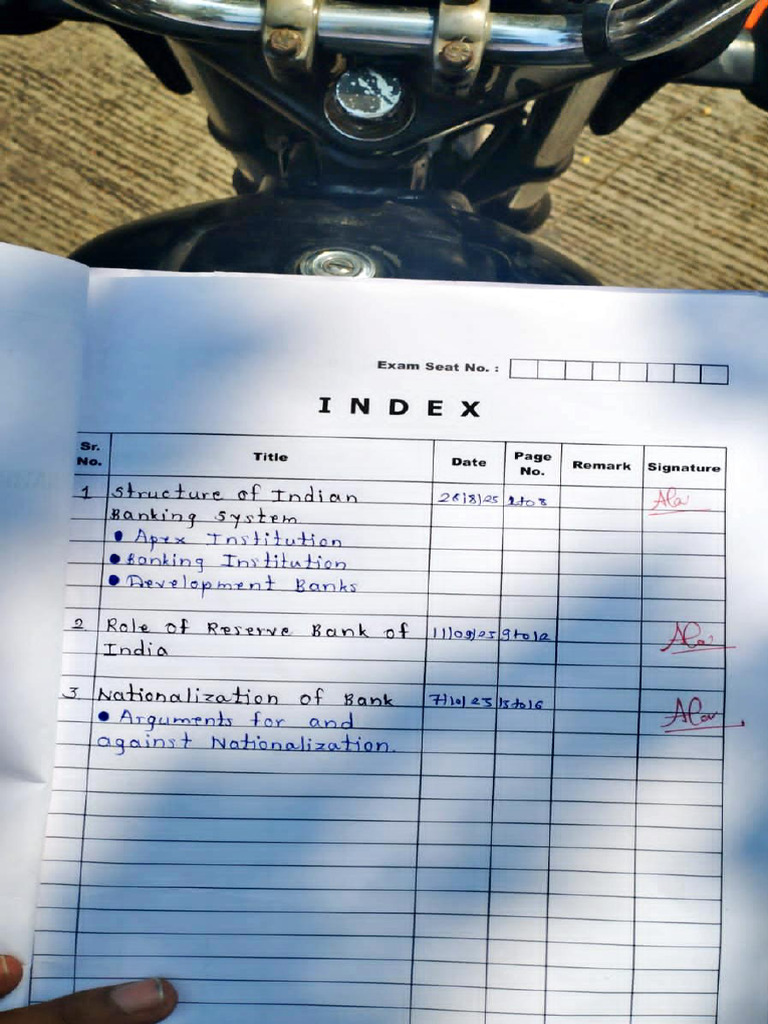 Exam Seat No. :
INDEX
Sr. No. Title Date Page No. Remark Signature
1 Structure of Indian 26/8/25 1to8
Banking System
• Apex Institution
• Banking Institution
• Development Banks
2 Role of Reserve Bank of 11/09/25 9to12
India
3 Nationalization of Bank 7/10/25 13to16
• Arguments for and
against Nationalization.